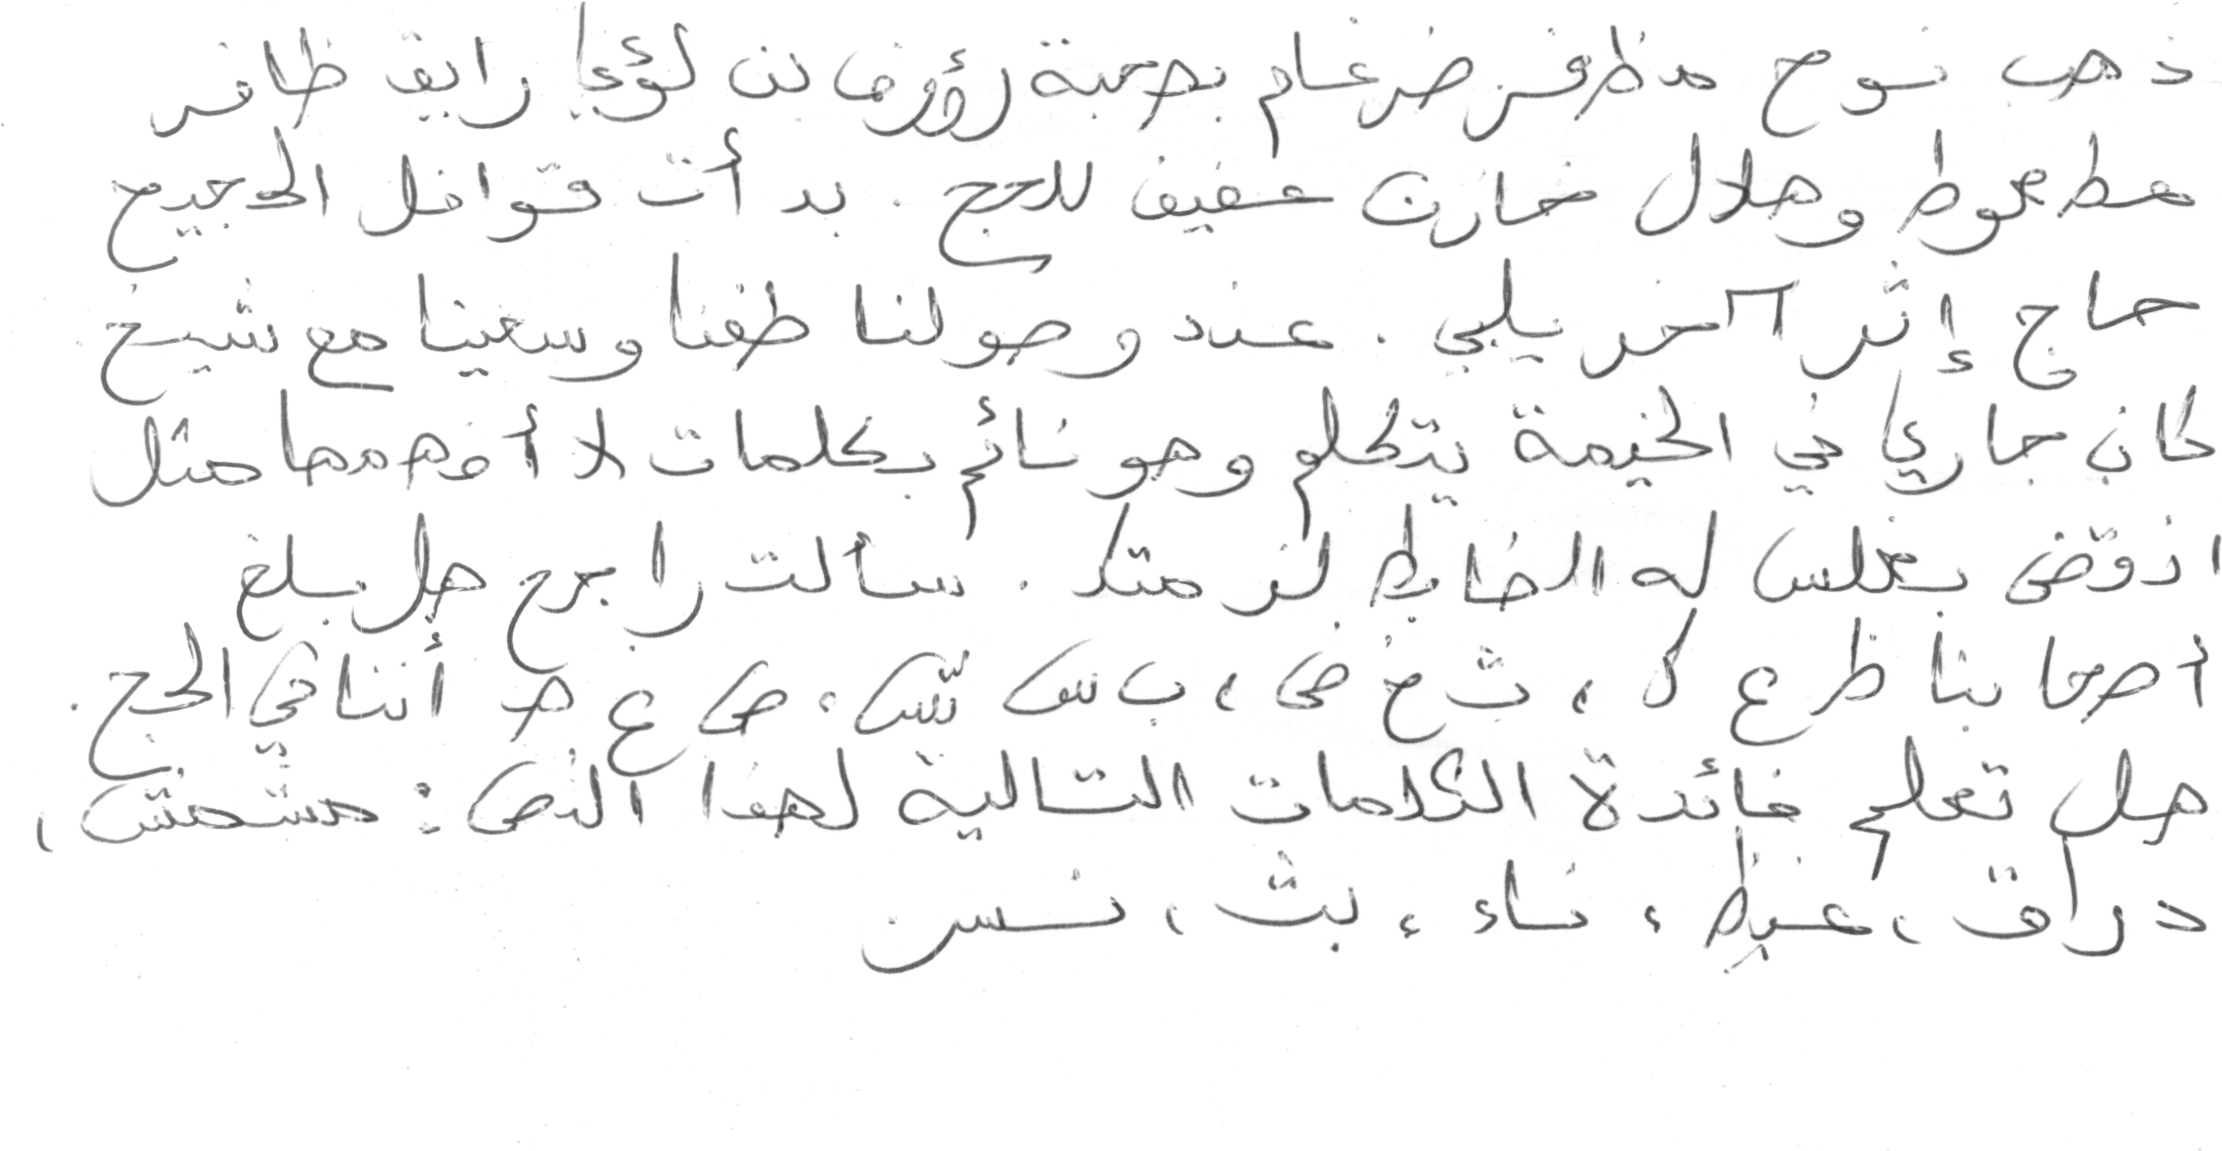 ذهب نوح مظفر ضرغام بصحبة رؤوف بن لؤي رايق ظافر
هطعوط وهلال خازن عفيف للحج . بدأت قوافل الحجيج
حاج إثر آخر يلبي . عند وصولنا طفنا وسعينا مع شيخ
كان جاري في الخيمة يتكلم وهو نائم بكلمات لا أفهمها مثل
اذوقض بغلس له الضابط لز متك . سألت رابح هل بلغ
أصحابنا ظ ع ك ، ث خ ض ، ب س ش ، ص ع ه أننا في الحج .
هل تعلم فائدة الكلمات التالية لهذا النص : مشمش ،
دراق ، غيظ ، ناء ، بث ، نسر